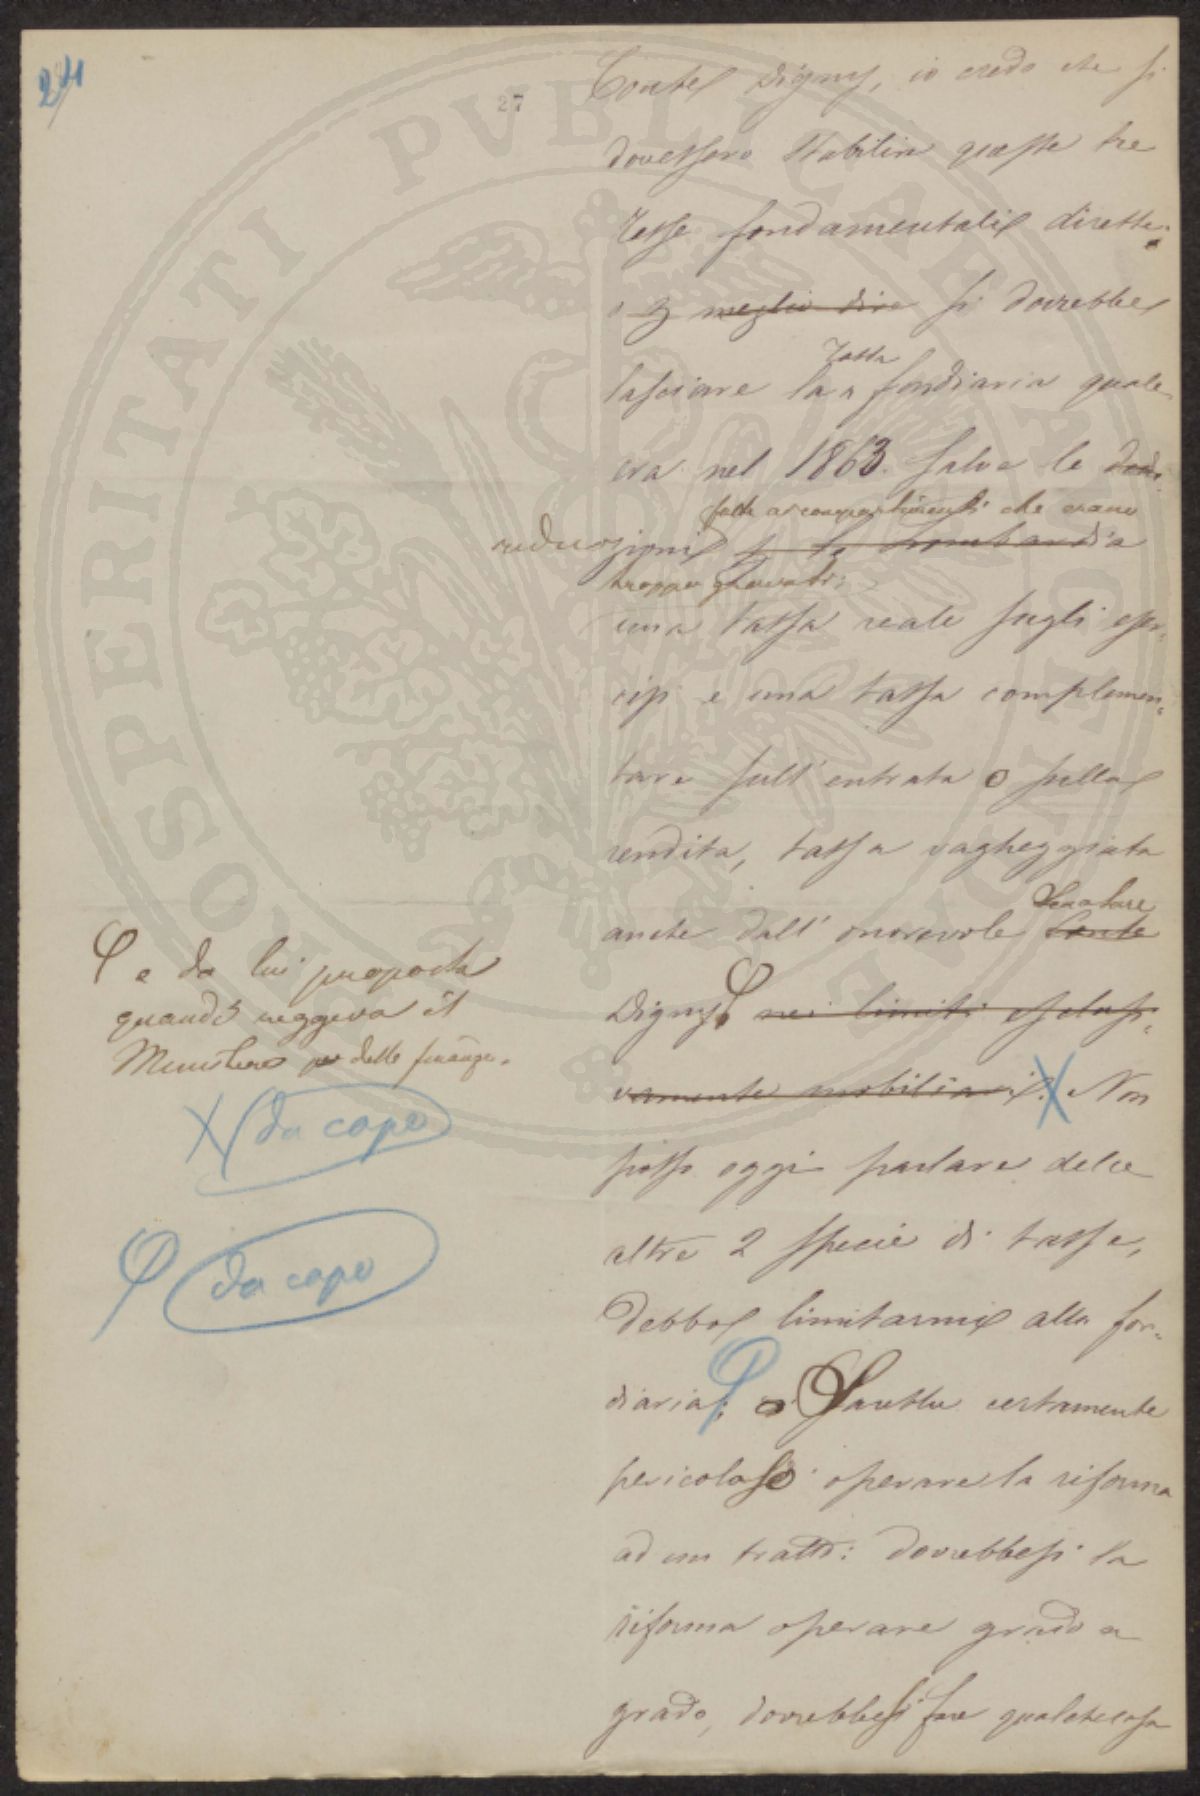 24
27
Conte Digny, io credo che si
dovessero stabilire queste tre
tasse fondamentali dirette:
o meglio dire si dovrebbe
tassa
lasciare la fondiaria quale
era nel 1863. salve le
fatte ai compartimenti che erano
riduzioni la Lombardia
troppo gravati;
una tassa reale sugli eser-
cizi e una tassa complemen-
tare sull'entrata o sulla
rendita, tassa vagheggiata
Senatore
anche dall'onorevole Conte
Digny nei limiti esclusi-
vamente mobiliari. X Non
posso oggi parlare delle
altre 2 specie di tasse,
debbo limitarmi alla fon-
diaria; Sarebbe certamente
pericoloso operare la riforma
ad un tratto: dovrebbesi la
riforma operare grado a
grado, dovrebbesi fare qualche cosa
e da lui proposta
quando reggeva il
Ministero delle finanze.
X da capo
da capo
PROSPERITATI PVBLICAE AVGENDAE